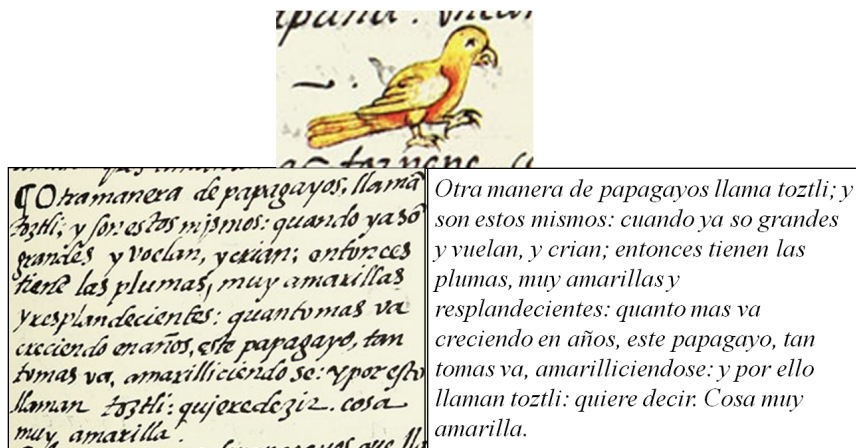 ¶Otra manera de papagayos, llamā
toztli; y son estos mismos: quando ya sō
grandes y voelan, y crian; entonces
tienē las plumas, muy amarillas
y resplandecientes: quantomas va
creciendo en años, este papagayo, tan
tomas va, amarilliciendo se: y por esto
llaman toztli: quiere dezir. cosa
muy amarilla.
Otra manera de papagayos llama toztli; y
son estos mismos: cuando ya so grandes
y vuelan, y crian; entonces tienen las
plumas, muy amarillas y
resplandecientes: quanto mas va
creciendo en años, este papagayo, tan
tomas va, amarilliciendose: y por ello
llaman toztli: quiere decir. Cosa muy
amarilla.